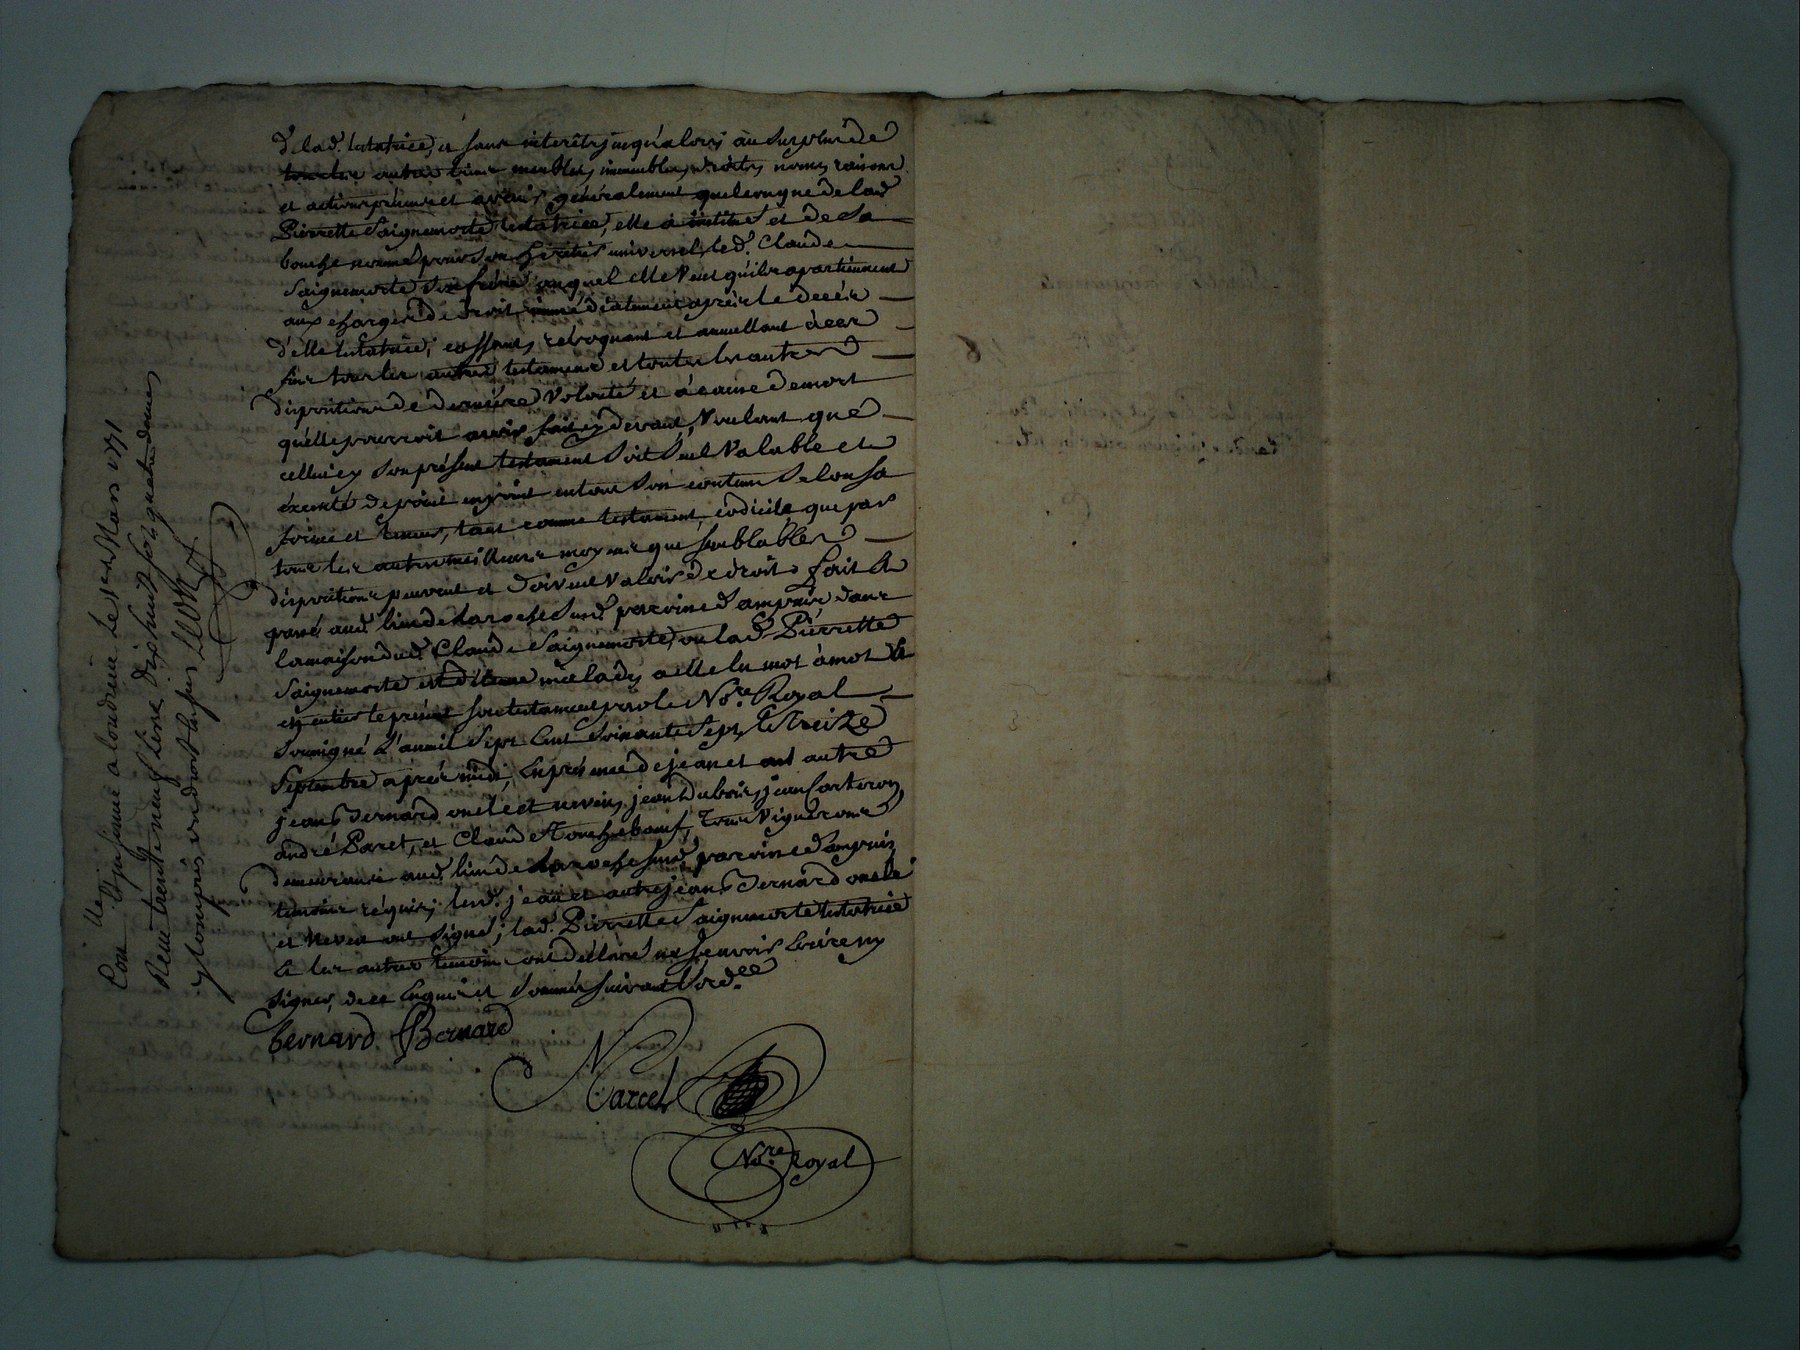 de lad. testatrice, et sans interêts jusqu'alors, au surplus de
tous les autres biens meubles, immeubles, droits, noms, raisons
et actions présents et avenir généralement quelconque de lad.
Pierrette Saignemorte testatrice, elle a institué et de sa
bouche nommé pour son héritier universel, led. Claude
Saignemorte son frère auquel elle veut qu'ils apartiennent
aux charges de droit immédiatement après le décès
d'elle testatrice, cassant, révoquant et annullant à ces
fins tous les autres testaments et toutes les autres
dispositions de dernière volonté et à cause de mort
qu'elle pourroit avoir fait cy devant, voulant que
celluicy son présent testament soit seul valable et
éxécuté de point en point en tout son contenu selon sa
forme et teneur, tant comme testament, codicile que par
tous les autres meilleurs moyens que semblables
dispositions peuvent et doivent valoir de droit, fait et
passé aud. lieu de paroisse d'ampuis dans
la maison dud. Claude Saignemorte, ou lad. Pierrette
Saignemorte est détenue malade, a elle lu mot à mot et
en entier le présent son testament par le No.re Royal
soussigné L'an mil sept cent soixante sept, le treize
Septembre après midi, En présence de jean et autre
jean Bernard oncle et neveu, jean Dubois, jean Corteron,
andré Paret, et Claude Touchebœuf, tous vignerons
demeurants aud. lieu de paroisse d'ampuis,
témoins réquis, lesd. jean et autre jean Bernard oncle
et neveu ont signé, lad. Pierrette Saignemorte testatrice
et les autres témoins ont déclaré ne sçavoir écrire ny
signer, de ce enquis et sommés suivant l'ord.ce
bernard Bernard
Marcel
No.re Royal
Con.lle a Condrieu Le 1er Mars 1771
Recu trente neuf livre dix huit sols quatre deniers
y compris